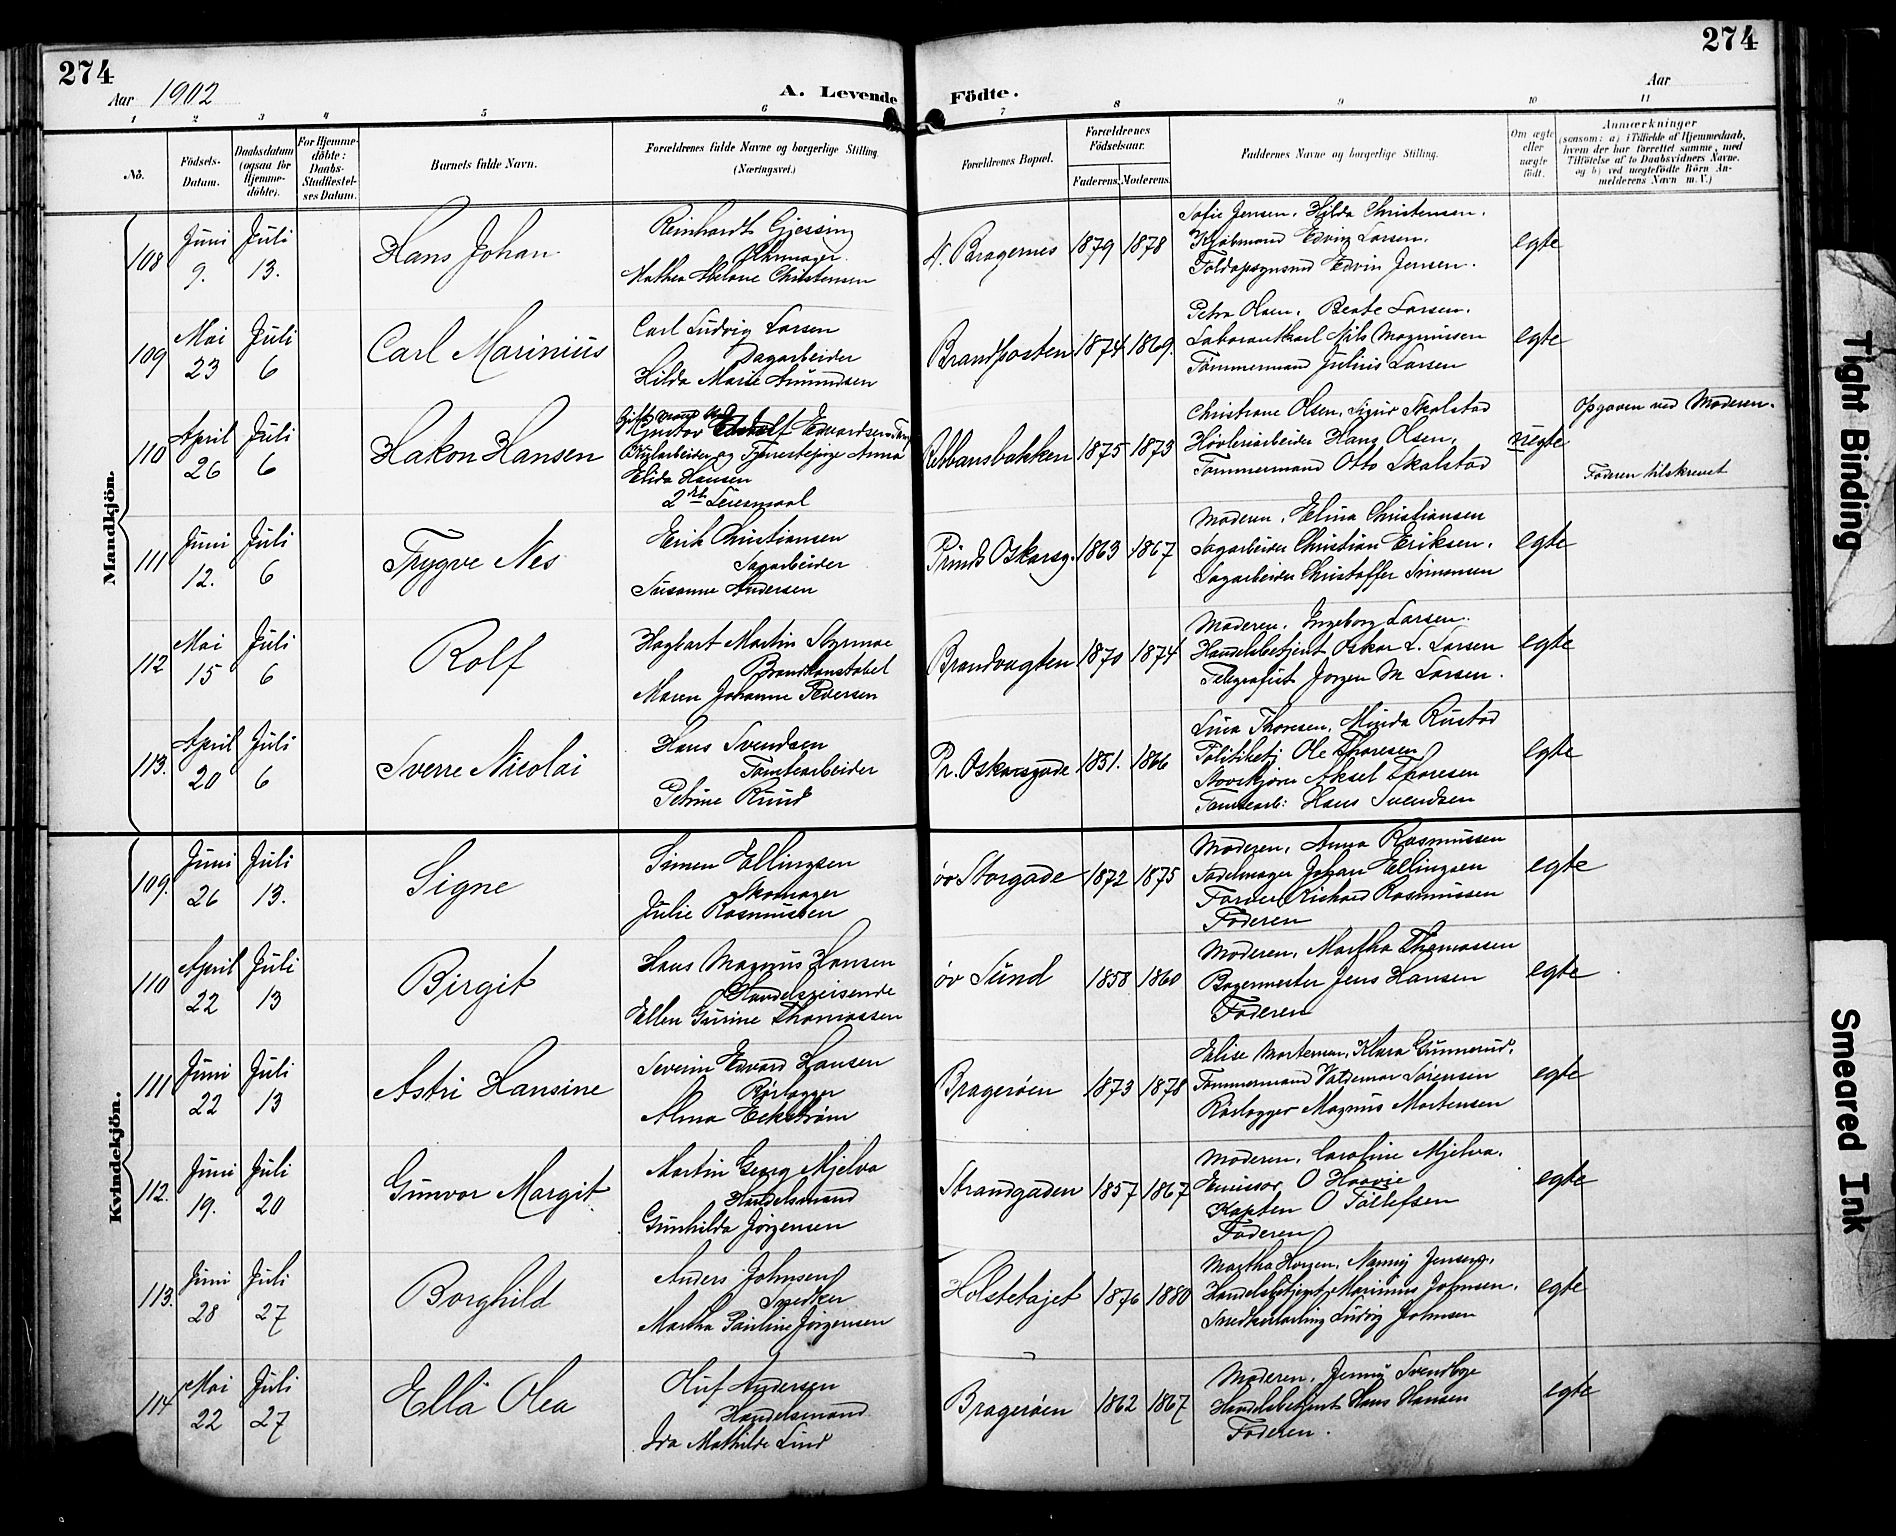 274
274
Aar 1902
A. Levende Födte.
Aar
1 2 3 4 5 6 7 8 9 10 11
No.
Födsels-Datum.
Daabsdatum (ogsaa for Hjemme-döbte).
For Hjemme-döbte: Daabs-Stadfæstel-ses Datum.
Barnets fulde Navn.
Forældrenes fulde Navne og borgerlige Stilling. (Næringsvei.)
Forældrenes Bopæl.
Forældrenes Födselsaar.
Faderens. Moderens.
Faddernes Navne og borgerlige Stilling.
Om ægte eller uægte födt.
Anmærkninger
(saasom: a) i Tilfælde af Hjemmedaab, hvem der har forrettet samme, med Tilföielse af to Daabsvidners Navne. og b) ved uægtefödte Börn Anmelderens Navn m. V.)
Mandkjön.
108 Juni 9. Juli 13. Hans Johan
Reinhardt Gjessing
Uhrmager.
Mathea Helene Christensen
N. Bragernes 1879 1878
Sofie Jensen, Hilda Christensen,
Kjøbmand Edvin Larsen.
Toldopsynsmd Edvin Jensen.
egte
109 Mai 23 Juli 6 Carl Marinius
Carl Ludvig Larsen
Dagarbeider
Hilda Marie Amundsen
Brandposten 1874 1869.
Petra Olsen, Beate Larsen,
Laborantkarl Nils Magnussen
Tømmermand Julius Larsen
egte
110 April 26 Juli 6 Hakon Hansen
Gustav Edvardsen
og Tjenestepige Anna
Elida Hansen
2det Leiermaal
Rebbansbakken 1875 1873
Christiane Olsen, Sigur Skalstad
Høvleriarbeider Hans Olsen,
Tømmermand Otto Skalstad
uegte
Opgaven ved Moderen.
Faderen tilskrevet
111 Juni 12. Juli 6 Trygve Nes
Erik Christiansen
Sagarbeider
Susanne Andersen
Prinds Oskarsg. 1863 1867
Moderen, Elina Christiansen
Sagarbeider Christian Eriksen,
Sagarbeider Christoffer Simensen
egte
112 Mai 15 Juli 6 Rolf
Hagbart Martin Styrmoe
Brandkonstabel
Maren Johanne Pedersen
Brandvagten 1870 1874
Moderen, Ingeborg Larsen.
Handelsbetjent Oskar L. Larsen
Telegrafist Jørgen M Larsen.
egte
113. April 20 Juli 6 Sverre Nicolai
Hans Svendsen
Tomtearbeider
Petrine Ruud
Pr. Oskarsgade 1851. 1866
Lina Thoresen, Minda Rustad
Politibetj Ole Thoresen
Aksel Thoresen
Tomtearb: Hans Svendsen
egte
Kvindekjön.
109. Juni 26 Juli 13. Signe
Simen Ellingsen
Skomager
Julie Rasmussen
øv Storgade 1872 1875
Moderen, Anna Rasmussen
Sadelmager Johan Ellingsen
Farver Richard Rasmussen
Faderen
egte
110 April 22 Juli 13 Birgit
Hans Magnus Hansen
Handelsreisende
Ellen Gurine Thomassen
øv Sund 1858 1860
Moderen, Martha Thomassen
Bagermester Jens Hansen
Faderen
egte
111 Juni 22 Juli 13 Astri Hansine
Severin Edvard Hansen
Rørlægger
Alma Eckstrøm
Bragerøen 1873 1878
Elise Mortensen, Klara Gunnerud,
Tømmermand Valdemar Sørensen
Rørlægger Magnus Mortensen
egte
112. Juni 19. Juli 20 Gunvor Margit
Martin Georg Mjelva
Handelsmand
Gunhilda Jørgensen
Strandgaden 1857 1867
Moderen, Caroline Mjelva.
Emissær O Haavie
Kapten O Tollefsen
Faderen
egte
113. Juni 28 Juli 27 Borghild
Anders Johnsen
Snedker
Martha Pauline Jørgensen
Holstetajet 1876 1880
Martha Horgen, Nanny Jensen,
Handelsbetjent Marinius Johnsen,
Snedkerlærling Ludvig Johnsen
egte
114 Mai 22 Juli 27 Ella Olea
Oluf Andersen
Handelsmand
Ida Mathilde Lind
Bragerøen 1862 1867
Moderen, Jenny Svendbye
Handelsbetjent Hans Hansen
Faderen.
egte
Tight Binding
Smeared Ink